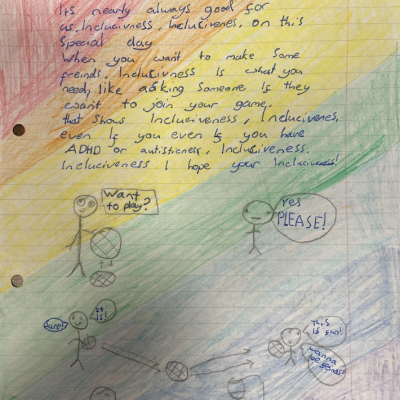 Its nearly always good for
us, Inclucivness, Inclucivenes. on this
Special day
When you want to make some
freinds, Inclucivness Is what you
need, like asking someone If they
want to join your game.
that shows Incluciveness, Inclucivenes,
even If you even If you have
ADHD or autisticness, Inclusiveness.
Incluciveness I hope your Incluciveness!
Want
to play?
Yes
PLEASE!
It
is!
This
is fun!
wanna
be freinds?